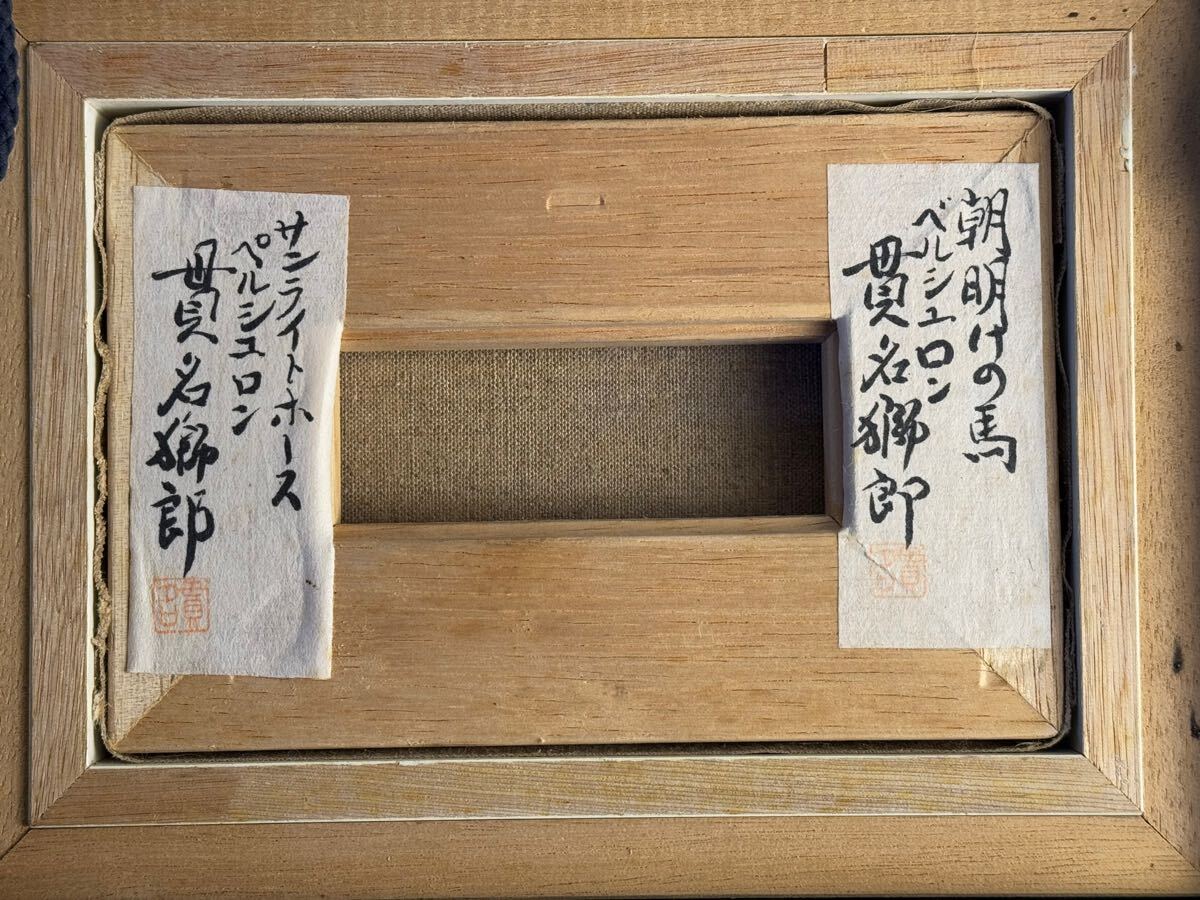 朝明けの馬
ベルシュロン
貫名獅郎
サンライトホース
ペルシュロン
貫名獅郎